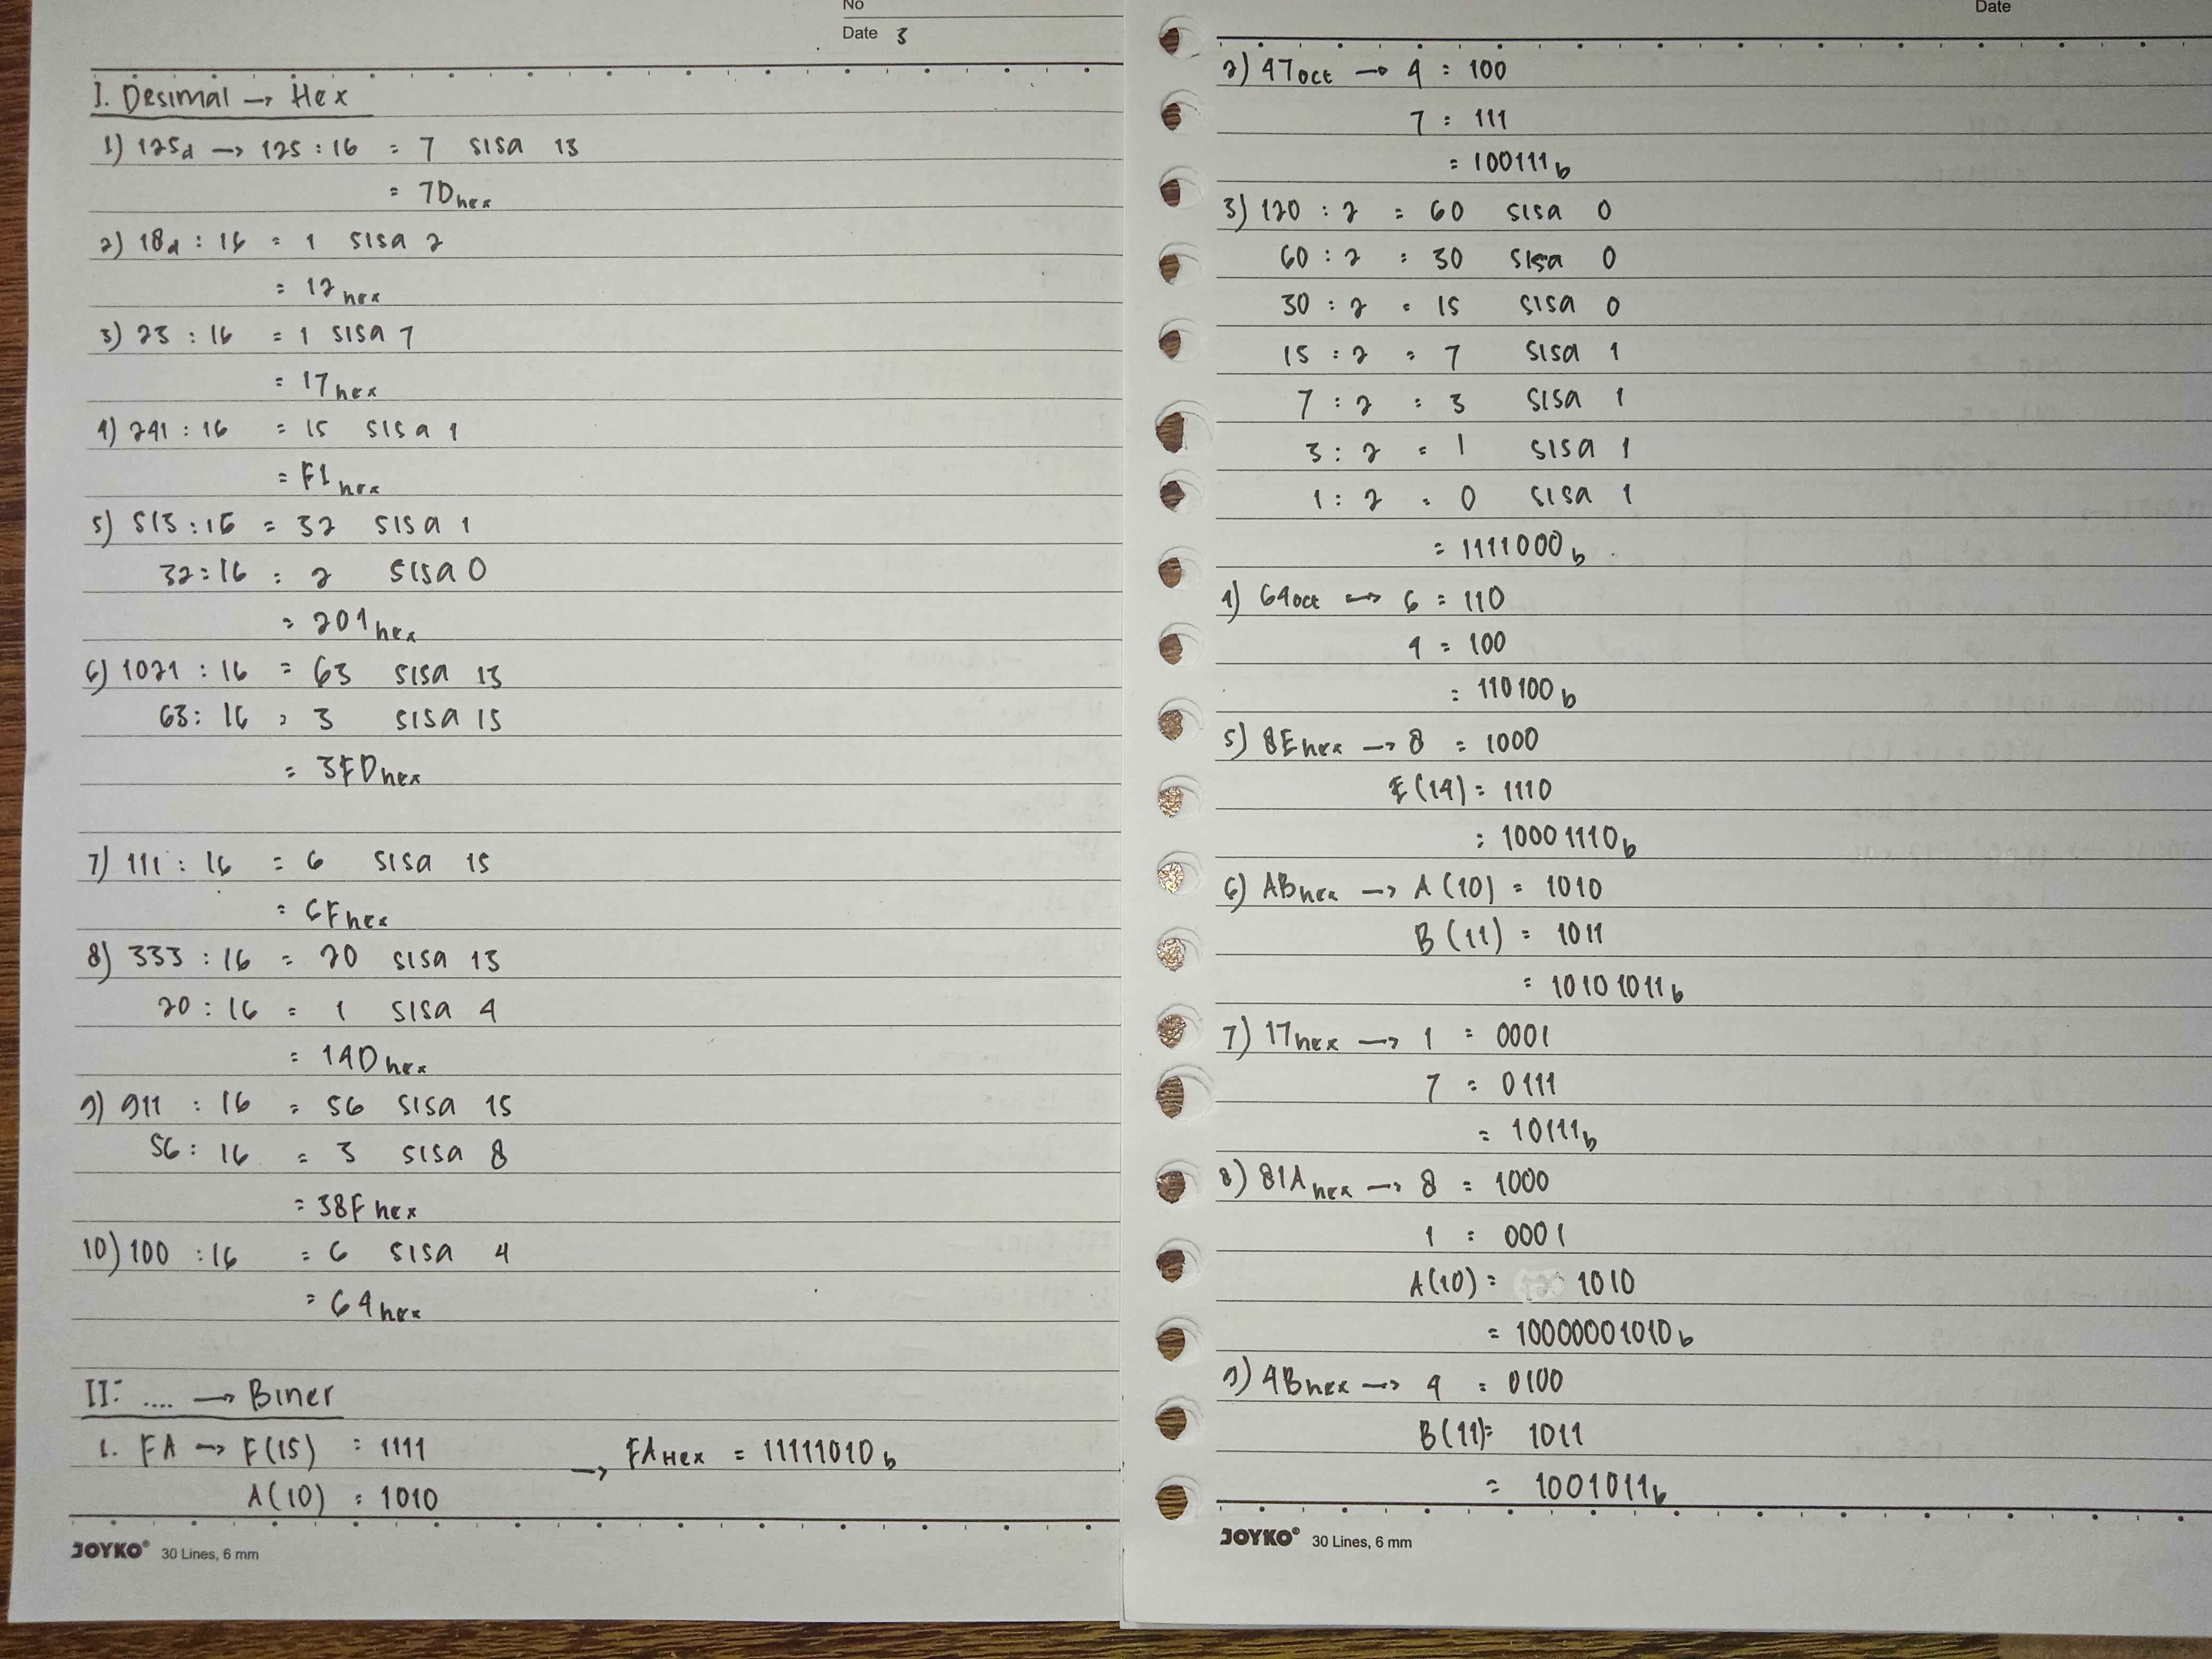 No
Date 3
I. Desimal → Hex
1) 125d → 125 : 16 = 7 sisa 13
= 7Dhex
2) 18d : 16 = 1 sisa 2
= 12hex
3) 23 : 16 = 1 sisa 7
= 17hex
4) 241 : 16 = 15 sisa 1
= F1hex
5) 513 : 16 = 32 sisa 1
32 : 16 = 2 sisa 0
= 201hex
6) 1021 : 16 = 63 sisa 13
63 : 16 = 3 sisa 15
= 3FDhex
7) 111 : 16 = 6 sisa 15
= 6Fhex
8) 333 : 16 = 20 sisa 13
20 : 16 = 1 sisa 4
= 14Dhex
9) 911 : 16 = 56 sisa 15
56 : 16 = 3 sisa 8
= 38Fhex
10) 100 : 16 = 6 sisa 4
= 64hex
II. .... → Biner
1. FA → F(15) = 1111 → FAHex = 11111010b
A(10) = 1010
JOYKO® 30 Lines, 6 mm
Date
2) 47oct → 4 = 100
7 = 111
= 100111b
3) 120 : 2 = 60 sisa 0
60 : 2 = 30 sisa 0
30 : 2 = 15 sisa 0
15 : 2 = 7 sisa 1
7 : 2 = 3 sisa 1
3 : 2 = 1 sisa 1
1 : 2 = 0 sisa 1
= 1111000b
4) 64oct → 6 = 110
4 = 100
= 110100b
5) 8Ehex → 8 = 1000
E(14) = 1110
= 10001110b
6) ABhex → A(10) = 1010
B(11) = 1011
= 10101011b
7) 17hex → 1 = 0001
7 = 0111
= 10111b
8) 81Ahex → 8 = 1000
1 = 0001
A(10) = 1010
= 10000001010b
9) 4Bhex → 4 = 0100
B(11) = 1011
= 1001011b
JOYKO® 30 Lines, 6 mm